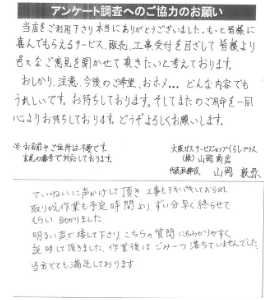 アンケート調査へのご協力のお願い
当店をご利用下さり本当にありがとうございました。もっと皆様に
喜んでもらえるサービス、販売、工事受付を目ざして皆様より
色々なご意見を聞かせて頂きたいと考えております。
おしかり、注意、今後のご希望、おホメ… どんな内容でも
うれしいです。お待ちしております。そしてまたのご用命を一同
心よりお待ちしております。どうぞよろしくお願いします。
※お名前やご住所は不要です。
大阪ガスサービスショップくらしプラス
(株)山岡商会
代表取締役 山岡
ていねいに声かけして頂き 工事もテキパキしておられ
取り付け作業も予定時間より、ずい分早く終らせて
もらい 助かりました
明るい声で接して下さり、こちらの質問にもわかりやすく
説明して頂きました。作業後はごみ一つ落ちていませんでした。
とても満足しております